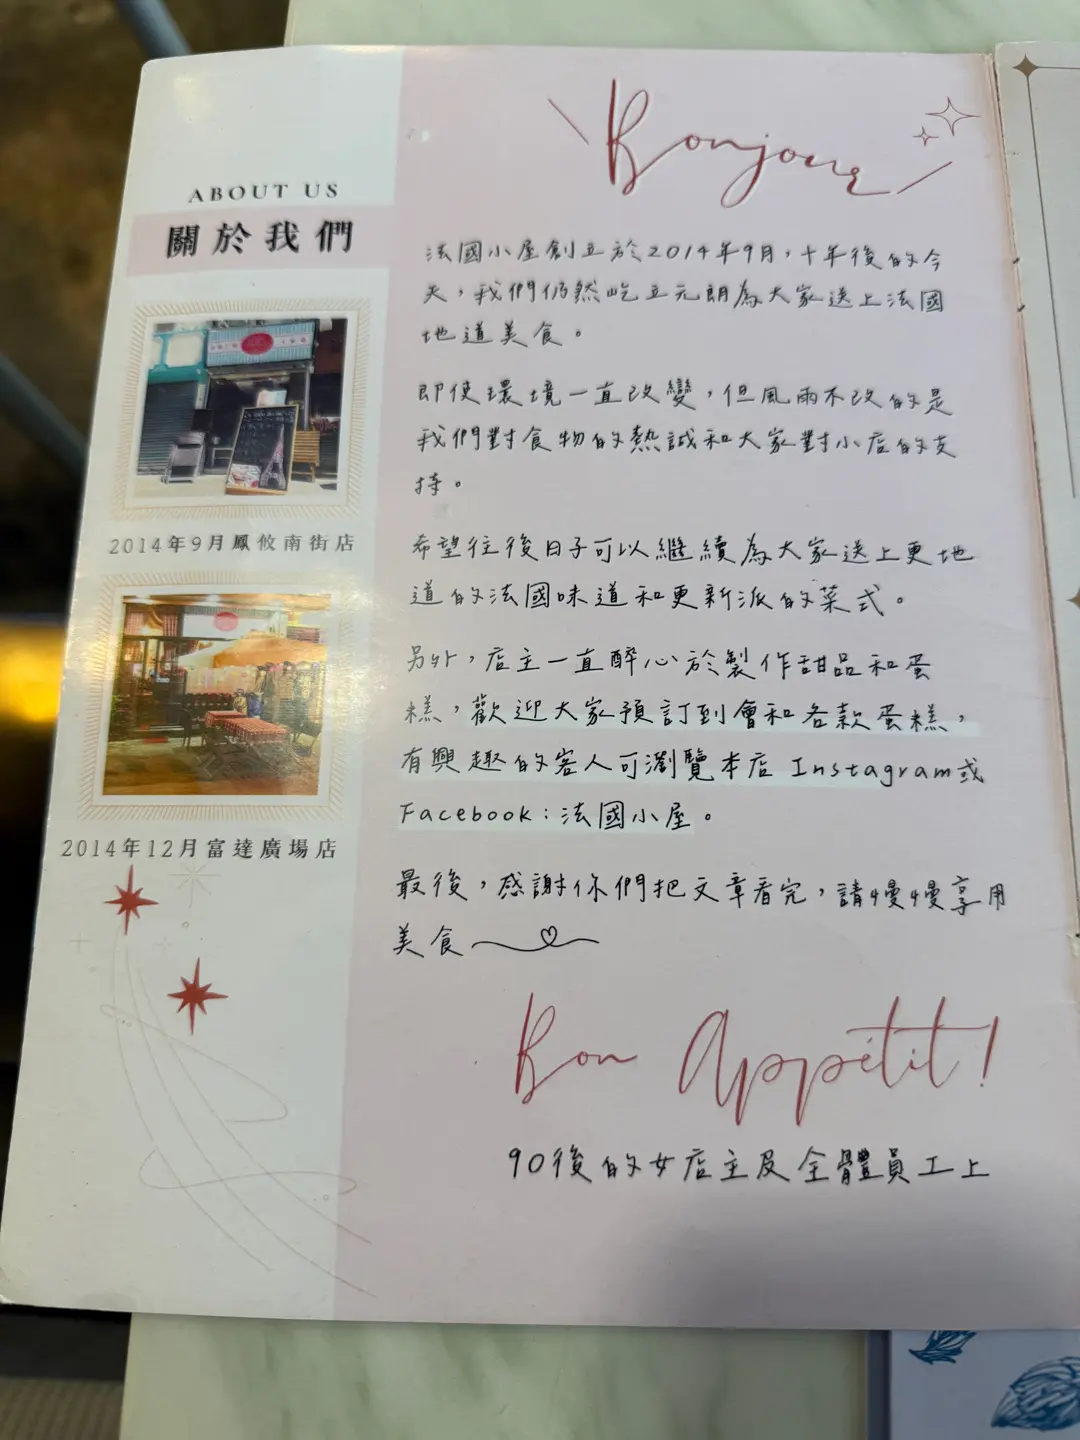 ABOUT US
關於我們
2014年9月鳳攸南街店
2014年12月富達廣場店
Bonjour
法國小屋創立於2014年9月，十年後的今
天，我們仍然屹立元朗為大家送上法國
地道美食。
即使環境一直改變，但風雨不改的是
我們對食物的熱誠和大家對小店的支
持。
希望往後日子可以繼續為大家送上更地
道的法國味道和更新派的菜式。
另外，店主一直醉心於製作甜品和蛋
糕，歡迎大家預訂到會和各款蛋糕，
有興趣的客人可瀏覽本店 Instagram或
Facebook：法國小屋。
最後，感謝你們把文章看完，請慢慢享用
美食
Bon Appétit!
90後的女店主及全體員工上